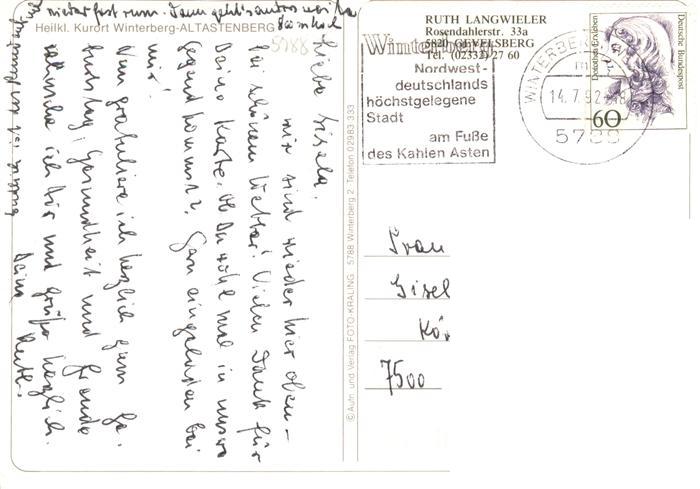 Heilkl. Kurort Winterberg-ALTASTENBERG
5788
Liebe Gisela.
wir sind wieder hier oben –
bei schönem Wetter! Vielen Dank für
Deine Karte. Ob Du wohl mal in unsere
Gegend kommst? Gern eingeladen bei
mir!
Nun gratuliere ich herzlich zum Ge-
burtstag; Gesundheit und Freude
wünsche ich Dir und grüße herzlich.
Deine Ruth.
© Aufn. und Verlag FOTO-KRALING 5788 Winterberg 2 Telefon 02983-333
RUTH LANGWIELER
Rosendahlerstr. 33a
5820 GEVELSBERG
Tel. (02332) 27 60
Winterberg
Nordwest-
deutschlands
höchstgelegene
Stadt
am Fuße
des Kahlen Asten
WINTERBERG
m
14.7.92-18
5788
Deutsche Bundespost
Dorothea Erxleben
60
Frau
Gisel
Kö
7500